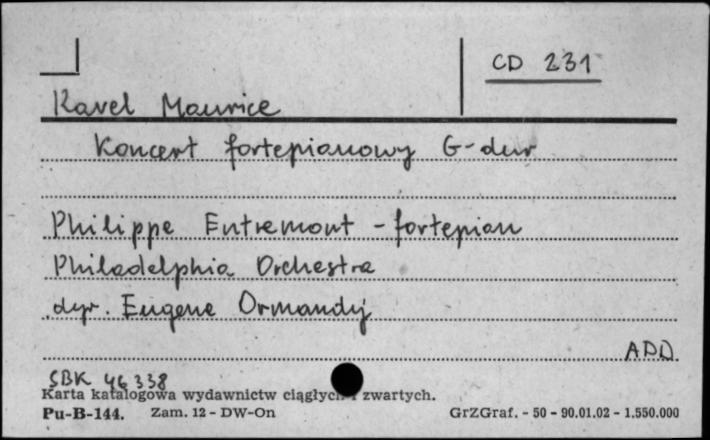 CD 231
Ravel Maurice
Koncert fortepianowy G-dur
Philippe Entremont - fortepian
Philadelphia Orchestra
dyr. Eugene Ormandy
ADD
SBK 46 338
Karta katalogowa wydawnictw ciągłych i zwartych.
Pu-B-144. Zam. 12 - DW-On GrZGraf. - 50 - 90.01.02 - 1.550.000